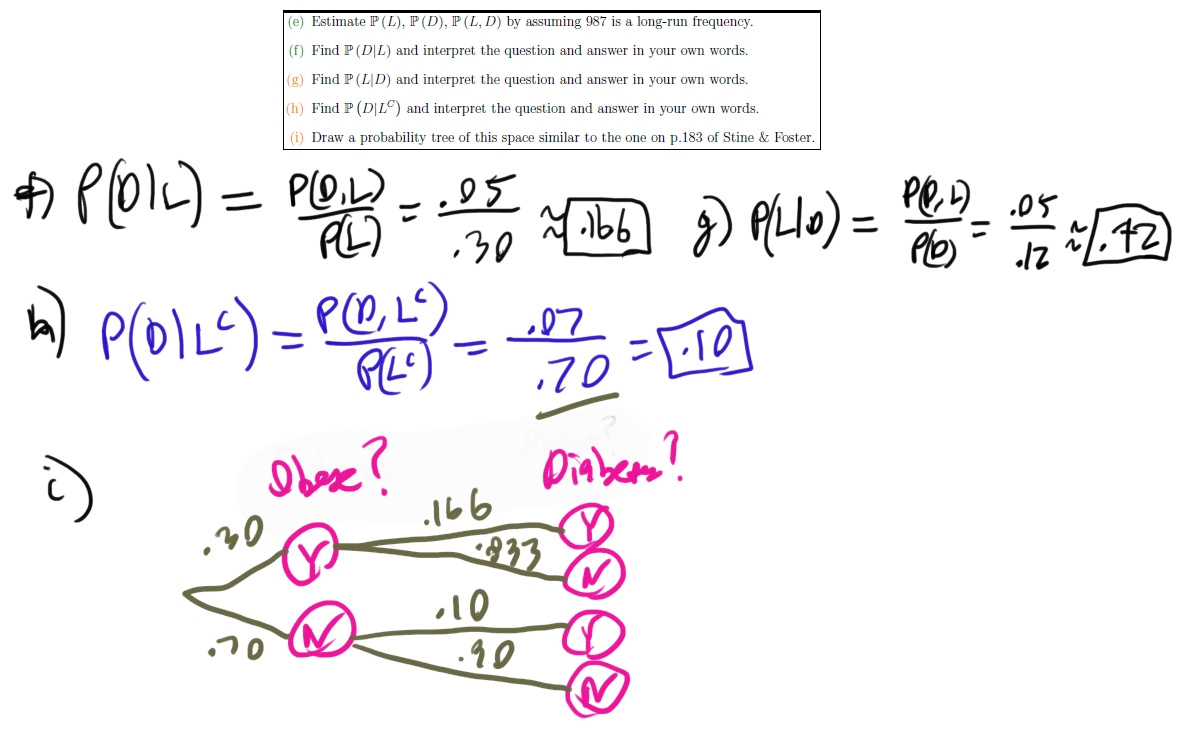 (e) Estimate ℙ(L), ℙ(D), ℙ(L, D) by assuming 987 is a long-run frequency.
(f) Find ℙ(D|L) and interpret the question and answer in your own words.
(g) Find ℙ(L|D) and interpret the question and answer in your own words.
(h) Find ℙ(D|Lᶜ) and interpret the question and answer in your own words.
(i) Draw a probability tree of this space similar to the one on p.183 of Stine & Foster.
f) P(D|L) = P(D,L)/P(L) = .05/.30 ≈ .166
g) P(L|D) = P(D,L)/P(D) = .05/.12 ≈ .42
h) P(D|Lᶜ) = P(D,Lᶜ)/P(Lᶜ) = .07/.70 = .10
i)
Obese? Diabetes?
.30 Y .166 Y
.833 N
.70 N .10 Y
.90 N